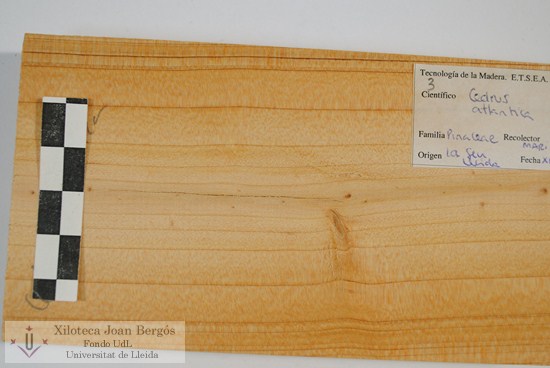 Tecnología de la Madera. E.T.S.E.A.
3
Científico Cedrus
atlantica
Familia Pinaceae Recolector
MARI
Origen La Seu
Lleida Fecha XI
Xiloteca Joan Bergós
Fondo UdL
Universitat de Lleida